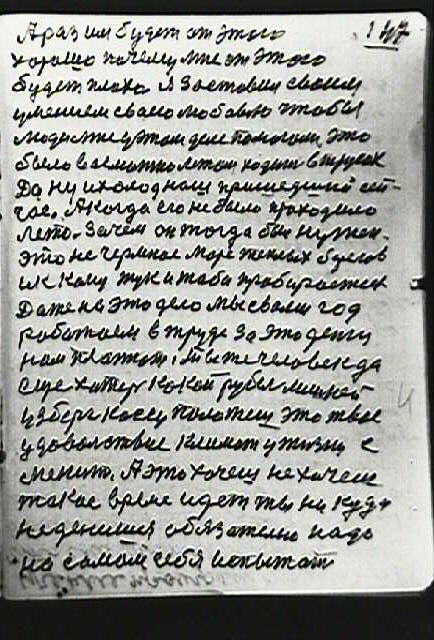 147
А раз им будет от этого
хорошо почему мне от этого
будет плохо. Я заставил своим
умением своею любовью чтобы
люди мне у этом деле помогали, это
было возможно летом ходить в трусах
Да ну и холод наш пришедший сей-
час. А когда его не было проходило
лето. Зачем он тогда был нужен.
Это не черное море теплых
и к кому жук и жаба пробирается
Даже на это дело мы свали год
работаем в труде за это деньги
нам платят. Ты же человек да
еще хитер какой рубль лишний
у зберг кассу положеш это твое
удовольствие климат у жизни с
менит. А это хочеш не хочеш
такое время идет ты ни куда
не денешся обязательно надо
на самом себя испытат